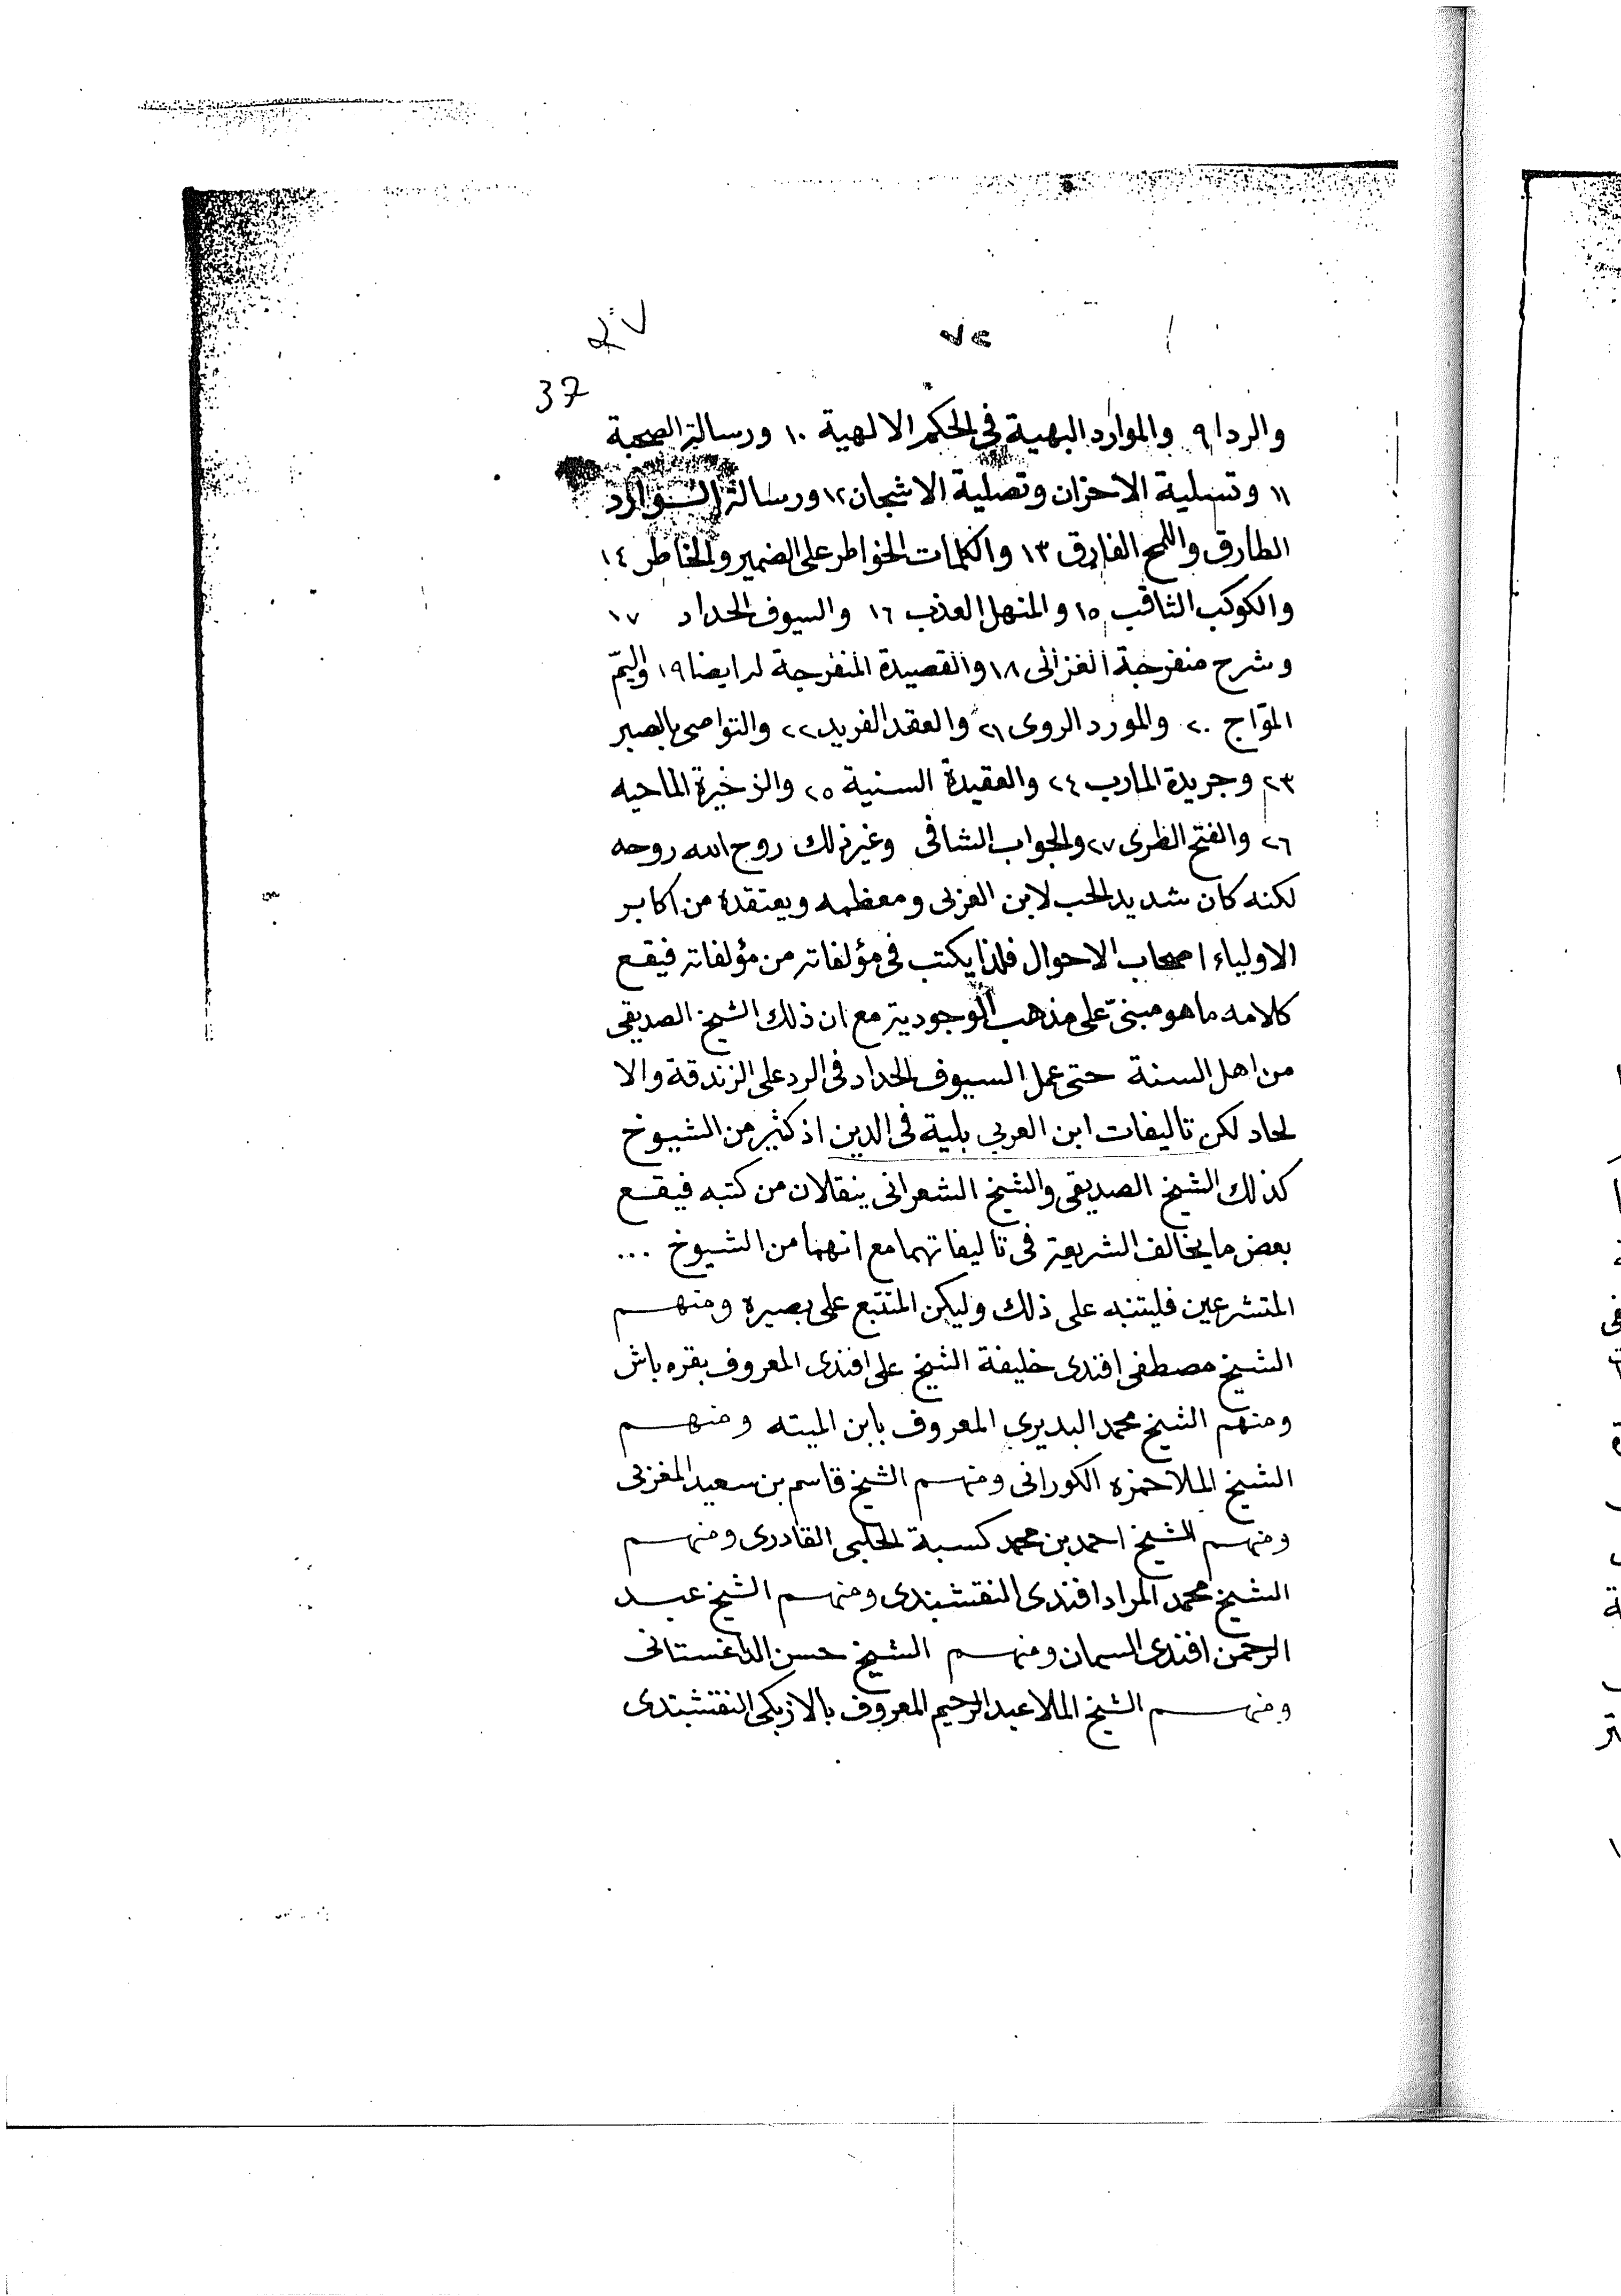 ٧٢
٣٧
37
والردا ٩ والموارد البهية فى الحكم الالهية ١٠ ورسالة الصحبة
١١ وتسلية الاحزان وتصلية الاشجان ١٢ ورسالة الوارد
الطارق واللمح الفارق ١٣ والكلمات الخواطر على الضمير والخاطر ١٤
والكوكب الثاقب ١٥ والمنهل العذب ١٦ والسيوف الحداد ١٧
وشرح منفرجة الغزالى ١٨ والقصيدة المنفرجة له ايضا ١٩ واليمّ
الموّاج ٢٠ والمورد الروى ٢١ والعقد الفريد ٢٢ والتواصى بالصبر
٢٣ وجريدة المارب ٢٤ والعقيدة السنية ٢٥ والذخيرة الماحيه
٢٦ والفتح الطرى ٢٧ والجواب الشافى وغير ذلك روح الله روحه
لكنه كان شديد الحب لابن العربى ومعظمه ويعتقده من اكابر
الاولياء اصحاب الاحوال فلذا يكتب فى مؤلفاته من مؤلفاته فيقع
كلامه ما هو مبنىّ على مذهب الوجودية مع ان ذلك الشيخ الصديقى
من اهل السنة حتى عمل السيوف الحداد فى الرد على الزندقة والا
لحاد لكن تاليفات ابن العربي بلية فى الدين اذ كثير من الشيوخ
كذلك الشيخ الصديقى والشيخ الشعرانى ينقلان من كتبه فيقع
بعض ما يخالف الشريعة فى تاليفاتهما مع انهما من الشيوخ ...
المتشرعين فليتنبه على ذلك وليكن المتتبع على بصيره ومنهم
الشيخ مصطفى افندى خليفة الشيخ على افندى المعروف بقره باش
ومنهم الشيخ محمد البديري المعروف بابن الميته ومنهم
الشيخ الملا حمزه الكورانى ومنهم الشيخ قاسم بن سعيد المغربى
ومنهم الشيخ احمد بن محمد كسبة الحلبى القادرى ومنهم
الشيخ محمد المراد افندى النقشبندى ومنهم الشيخ عبد
الرحمن افندى السمان ومنهم الشيخ حسن الداغستانى
ومنهم الشيخ الملا عبد الرحيم المعروف بالازبكى النقشبندى